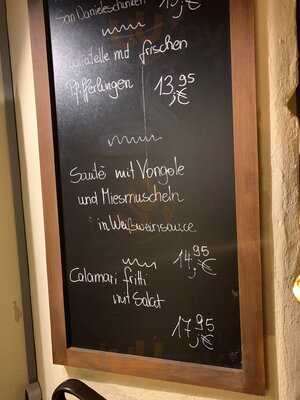 San Danieleschinken
mit frischen
Pfifferlingen 13,95 €
Sautè mit Vongole
und Miesmuscheln
in Weißweinsauce
14,95 €
Calamari fritti
mit Salat
17,95 €